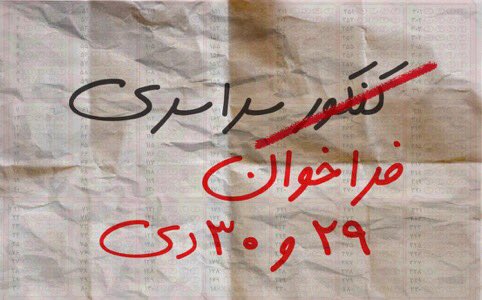 کنکور سراسری
فراخوان
۲۹ و ۳۰ دی